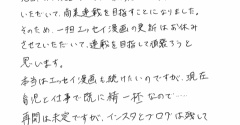 いただいて、商業連載を目指すことになりました。
そのため、一旦エッセイ漫画の更新はお休み
させていただいて、連載を目指して頑張ろうと
思います。
本当はエッセイ漫画も続けたいのですが、現在
育児と仕事で既に精一杯なので…
再開は未定ですが、インスタとブログは残して